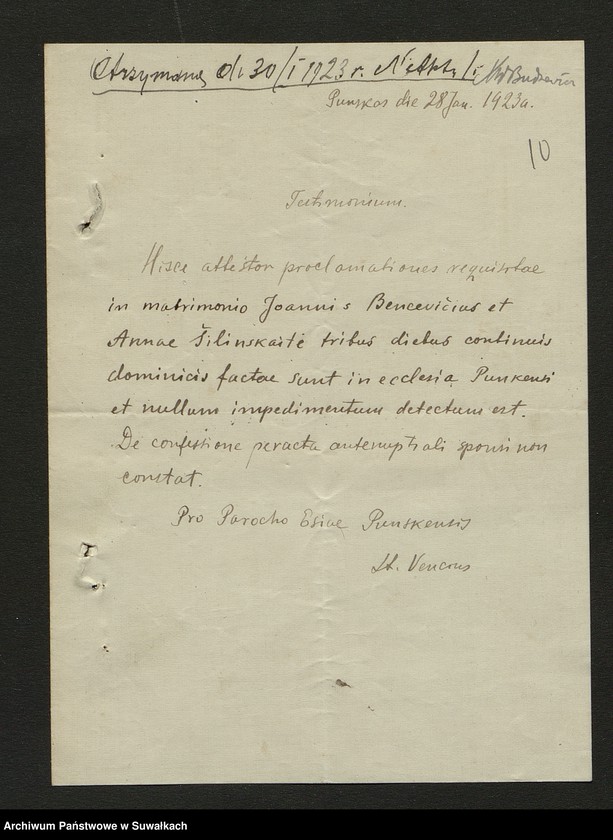 Otrzymano d. 30/I 1923 r. N Aktu 1
Punskas die 28 Jan. 1923 a.
10
Testimonium.
Hisce attestor proclamationes requisitae
in matrimonio Joannis Bencevičius et
Annae Šilinskaitė tribus diebus continuis
dominicis factae sunt in ecclesia Punkensi
et nullum impedimentum detectum est.
De confessione peracta antenuptiali sponsi non
constat.
Pro Parocho Esiae Punskensis
St.
Archiwum Państwowe w Suwałkach